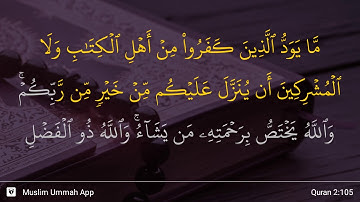 مَّا يَوَدُّ الَّذِينَ كَفَرُوا۟ مِنْ أَهْلِ الْكِتَـٰبِ وَلَا
الْمُشْرِكِينَ أَن يُنَزَّلَ عَلَيْكُم مِّنْ خَيْرٍ مِّن رَّبِّكُمْ ۗ
وَاللَّهُ يَخْتَصُّ بِرَحْمَتِهِۦ مَن يَشَآءُ ۚ وَاللَّهُ ذُو الْفَضْلِ
Muslim Ummah App
Quran 2:105